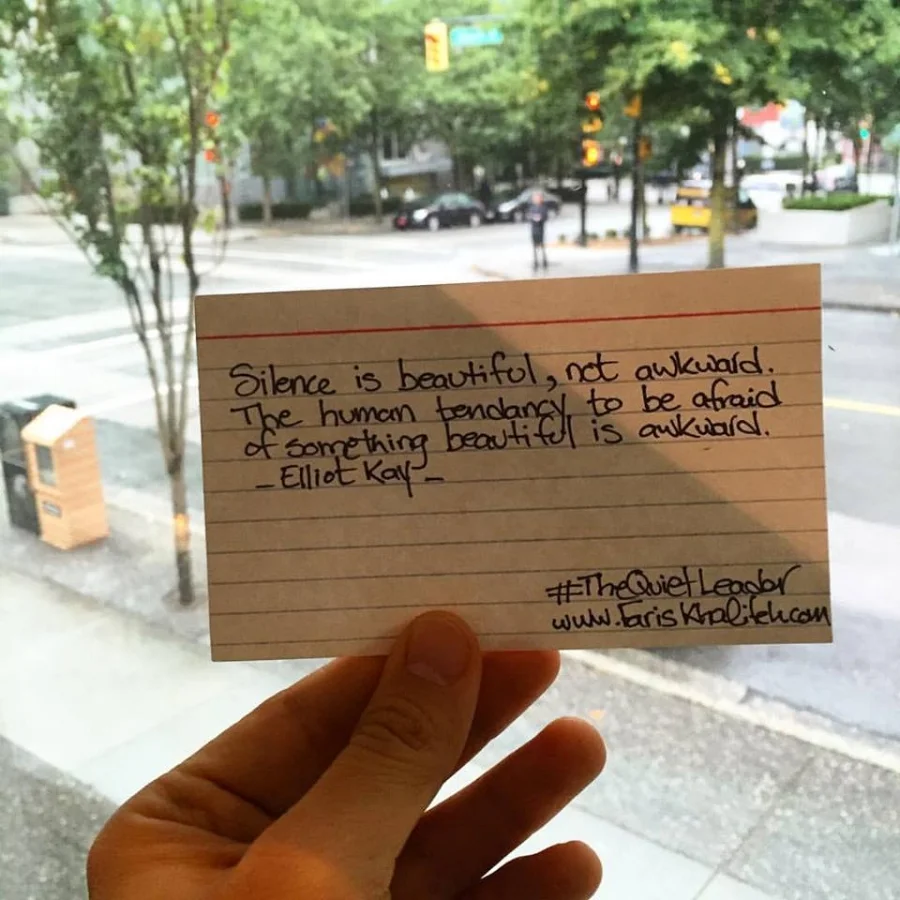 Silence is beautiful, not awkward.
The human tendancy to be afraid
of something beautiful is awkward.
- Elliot Kay -
#TheQuietLeader
www.FarisKhalifeh.com